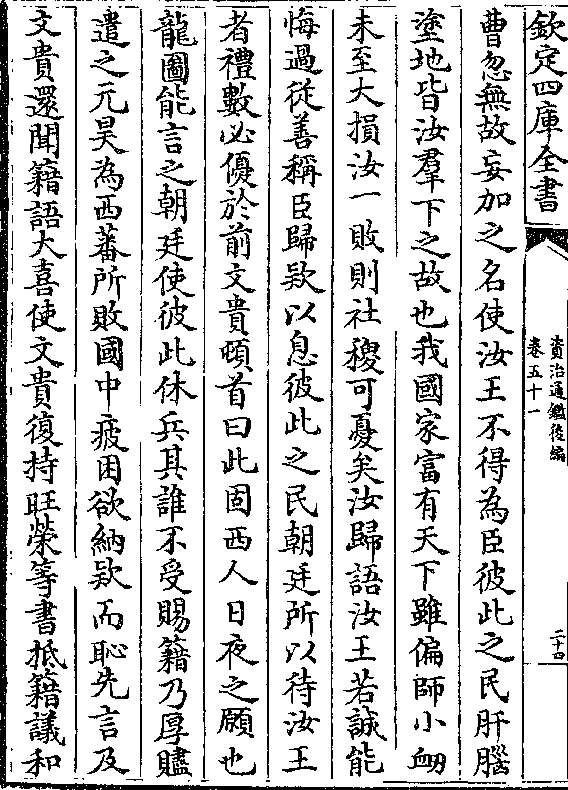 欽定四庫全書
資治通鑑後編
卷五十一
二十四
曹忽無故妄加之名使汝王不得為臣彼此之民肝腦
塗地皆汝羣下之故也我國家富有天下雖偏師小衂
未至大損汝一敗則社稷可憂矣汝歸語汝王若誠能
悔過從善稱臣歸欵以息彼此之民朝廷所以待汝王
者禮數必優於前文貴頓首曰此固西人日夜之願也
龍圖能言之朝廷使彼此休兵其誰不受賜籍乃厚贐
遣之元昊為西蕃所敗國中疲困欲納欵而恥先言及
文貴還聞籍語大喜使文貴復持旺榮等書抵籍議和